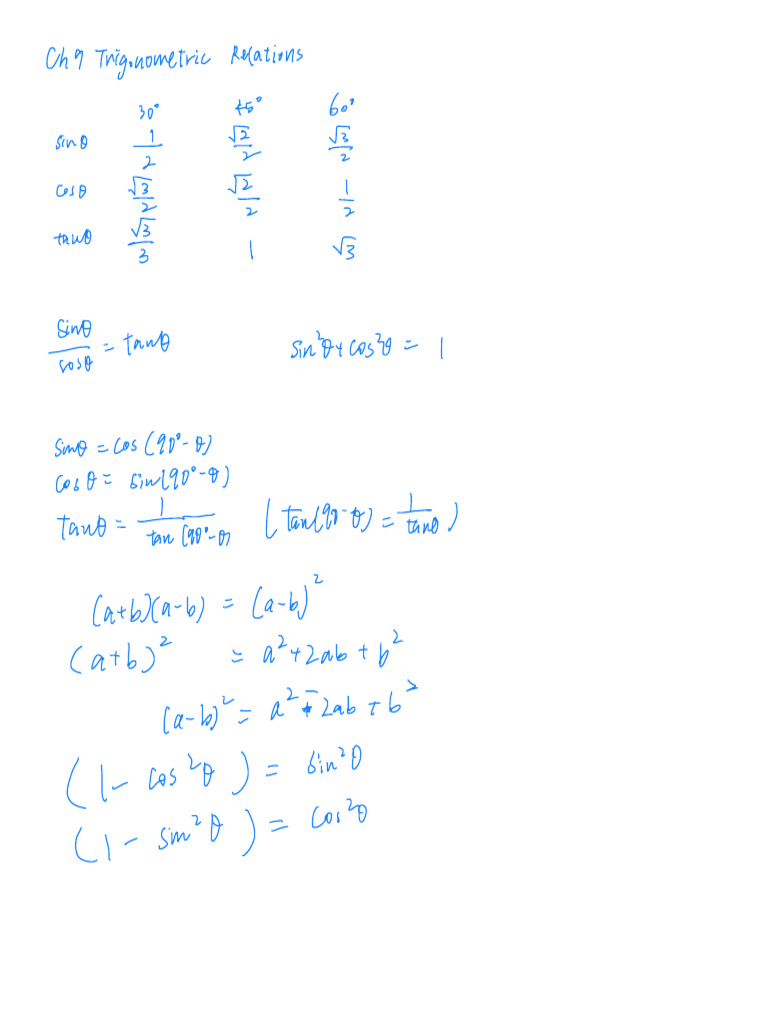 Ch 9 Trigonometric Relations
30° 45° 60°
sinθ 1/2 √2/2 √3/2
cosθ √3/2 √2/2 1/2
tanθ √3/3 1 √3
sinθ/cosθ = tanθ sin²θ + cos²θ = 1
sinθ = cos (90° - θ)
cosθ = sin(90° - θ)
tanθ = 1/tan (90° - θ) ( tan(90 - θ) = 1/tanθ )
(a+b)(a-b) = (a-b)²
(a+b)² = a² + 2ab + b²
(a-b)² = a² - 2ab + b²
(1 - cos²θ) = sin²θ
(1 - sin²θ) = cos²θ